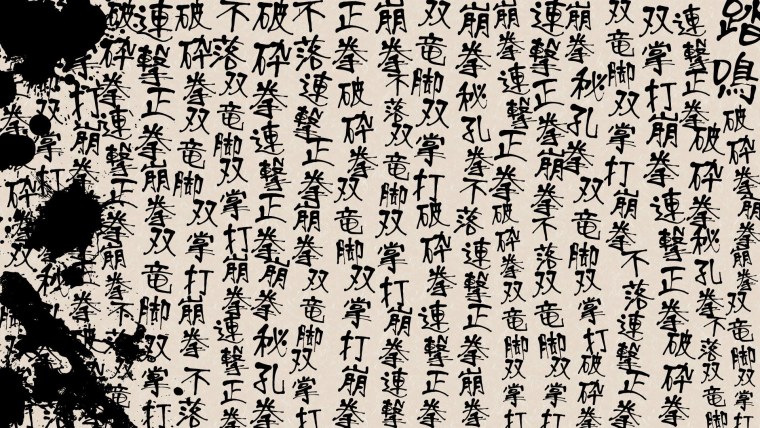 踏鳴
破砕拳崩拳崩拳双竜脚双掌打
連撃正拳破砕拳秘孔拳不落双竜脚
双掌打崩拳連撃正拳破砕拳
双竜脚双掌打崩拳不落連撃正拳
崩拳秘孔拳双竜脚双掌打破砕拳
連撃正拳連撃正拳崩拳不落双竜脚双掌打
崩拳連撃正拳破砕拳双竜脚双掌打
崩拳秘孔拳不落連撃正拳崩拳
双竜脚双掌打破砕拳連撃正拳
崩拳不落双竜脚双掌打崩拳連撃
正拳破砕拳双竜脚双掌打崩拳
不落連撃正拳崩拳双竜脚双掌打
破砕拳連撃正拳崩拳秘孔拳
不落双竜脚双掌打崩拳連撃正拳
破砕拳双竜脚双掌打崩拳不落
連撃正拳崩拳双竜脚双掌打
破砕拳連撃正拳崩拳不落双竜
打崩拳